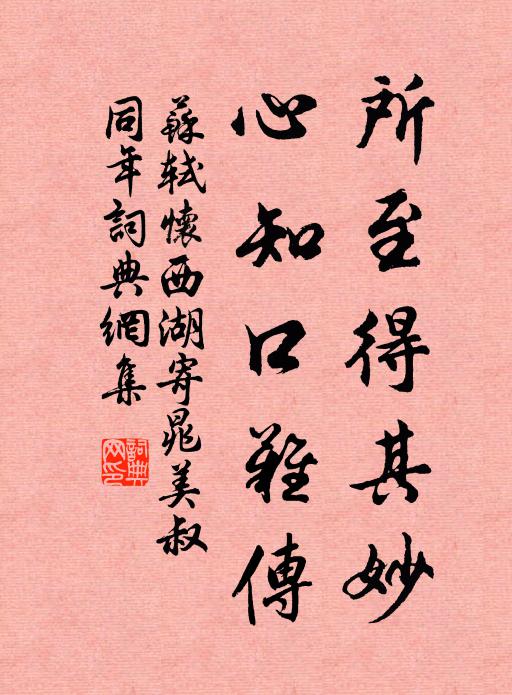 所至得其妙
心知口難傳
蘇軾懷西湖寄晁美叔
同年詞典網集
詞典網印